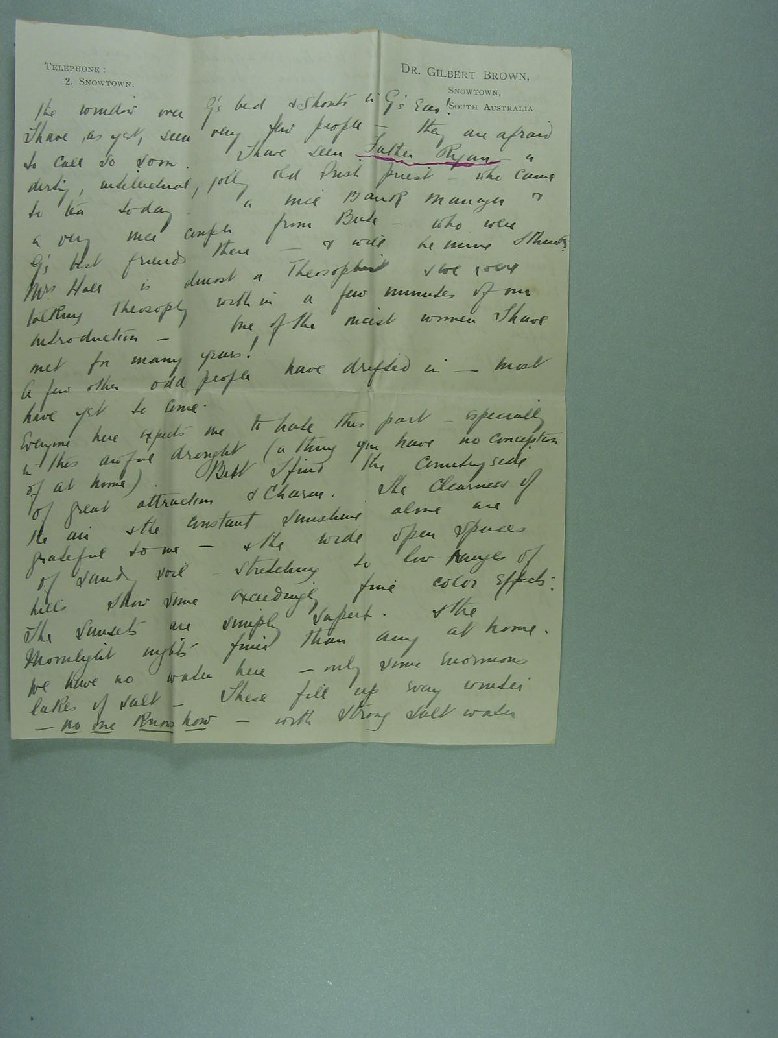 TELEPHONE:
2, SNOWTOWN.
DR. GILBERT BROWN,
SNOWTOWN,
SOUTH AUSTRALIA
the window over G's bed & shouts in G's Ears!
I have, as yet, seen very few people — they are afraid
to call so soon. I have seen Father Ryan — a
dirty, intellectual, jolly old Irish priest — who came
to tea today. a nice Bank Manager &
a very nice couple from Bute — who were
G's best friends there — & will be mine I think.
Mrs Hall is almost a Theosophist & we were
talking Theosophy within a few minutes of our
introduction — One of the nicest women I have
met for many years!
A few other odd people have drifted in — most
have yet to come.
Everyone here expects me to hate this part — especially
in this awful drought (a thing you have no conception
of at home). But I find the Countryside
of great attraction & charm. The clearness of
the air & the constant sunshine alone are
grateful to me — & the wide open spaces
of sandy soil — stretching to low ranges of
hills show some exceedingly fine color effects.
The sunsets are simply superb. & the
Moonlight nights finer than any at home.
We have no water here — only some enormous
lakes of salt — These fill up every winter
— no one knows how — with strong salt water